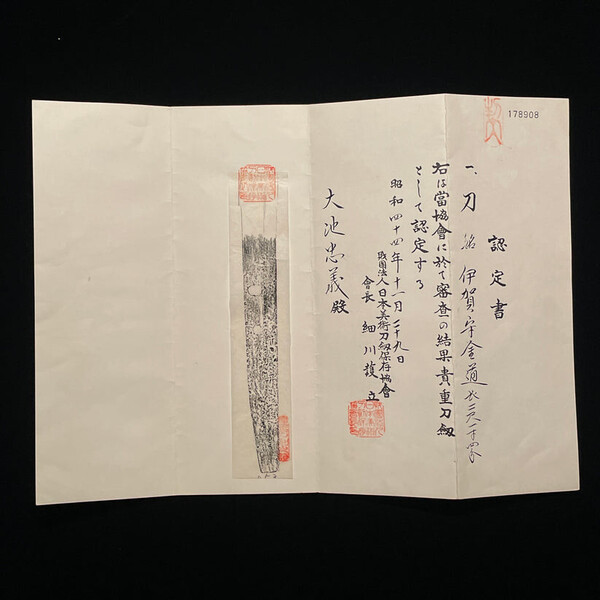 178908
認定書
一、刀 銘 伊賀守金道
右は當協會に於て審査の結果貴重刀劔
として認定する
昭和四十四年十一月二十九日
財團法人日本美術刀劔保存協會
會長 細川護立
大池忠義殿